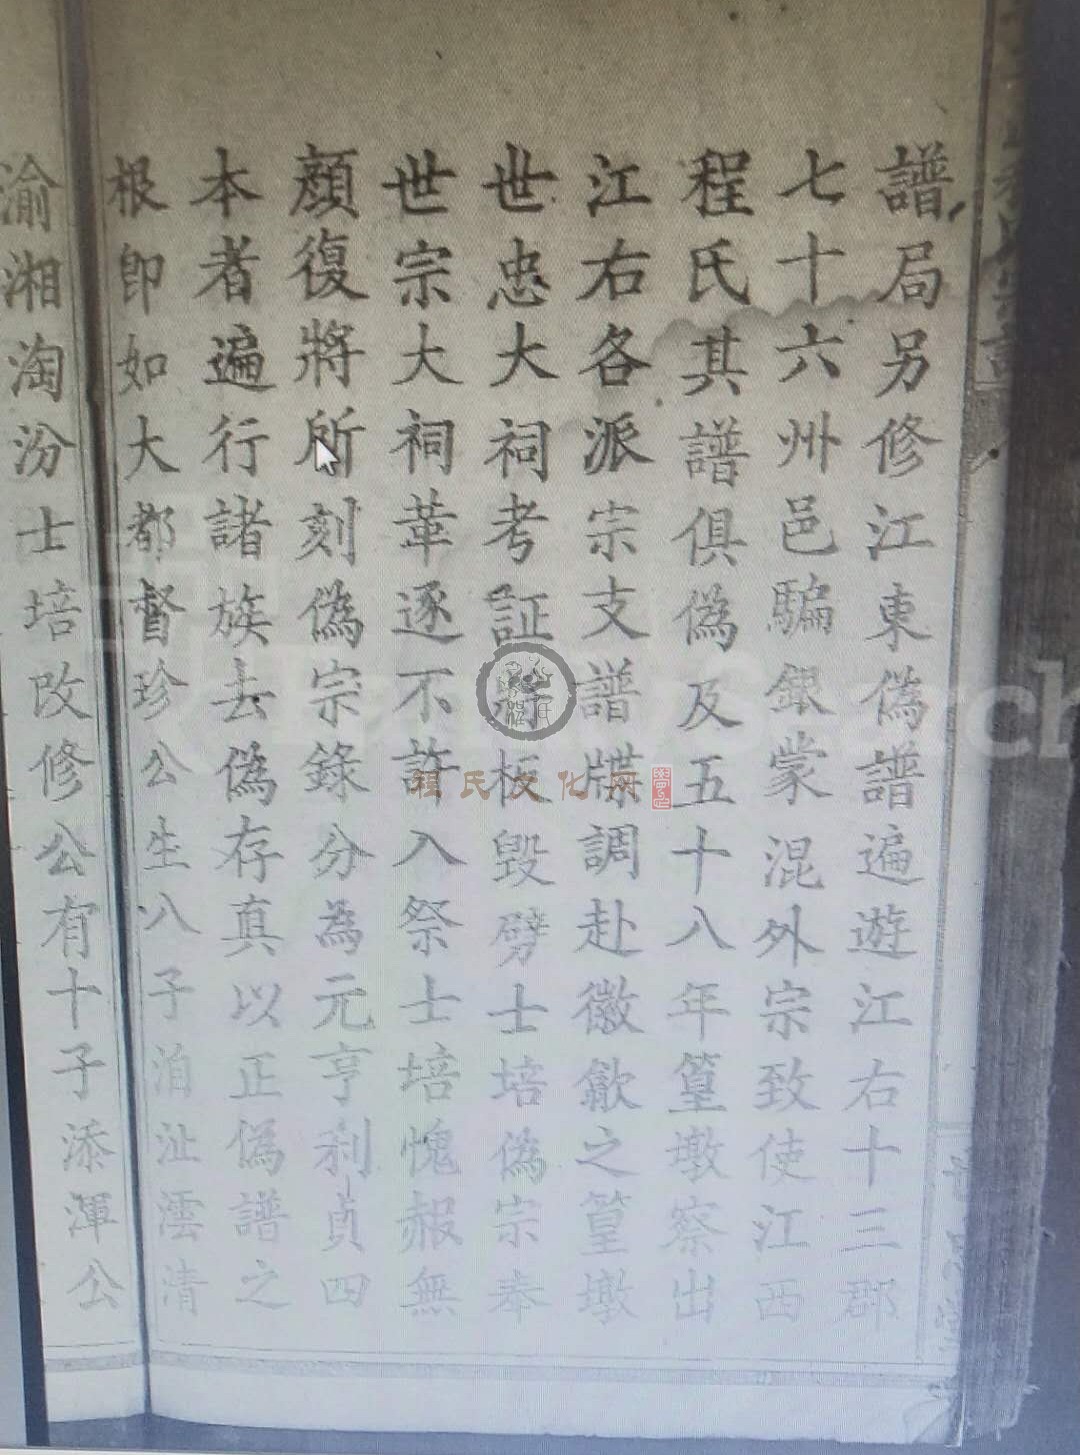 譜局另修江東偽譜遍遊江右十三郡
七十六州邑騙銀蒙混外宗致使江西
程氏其譜俱偽及五十八年篁墩察出
江右各派宗支譜牒調赴徽歙之篁墩
世忠大祠考証將板毀劈士培偽宗奉
世宗大祠革逐不許入祭士培愧赧無
顏復將所刻偽宗錄分為元亨利貞四
本者遍行諸族去偽存真以正偽譜之
根即如大都督珍公生八子泊沚澐清
渝湘淘汾士培改修公有十子添渾公
程氏文化府